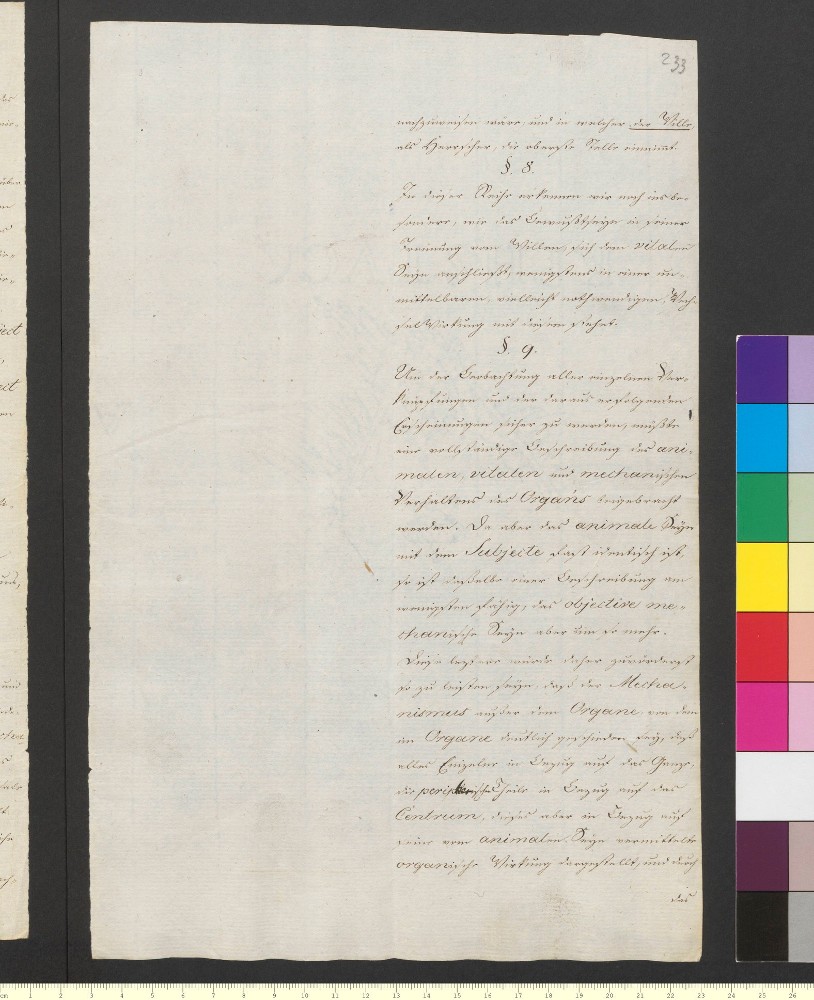 233
nachzuweisen wäre, und in welcher der Wille,
als Herrscher, die oberste Stelle einnimt.
§. 8.
In dieser Reihe erkennen wir noch insbe-
sondere, wie das Bewußtseyn in seiner
Trennung vom Willen, sich dem vitalen
Seyn anschließt, wenigstens in einer un-
mittelbaren, vielleicht nothwendigen, Wech-
selWirkung mit diesem stehet.
§. 9.
Um der Beobachtung aller einzelnen Ver-
knüpfungen und der daraus erfolgenden
Erscheinungen sicher zu werden, müßte
eine vollständige Beschreibung des ani-
malen, vitalen und mechanischen
Verhaltens des Organs beigebracht
werden. Da aber das animale Seyn
mit dem Subjecte fast identisch ist,
so ist dasselbe einer Beschreibung am
wenigsten fähig, das objective me-
chanische Seyn aber um so mehr.
Diese leztere würde daher zuvörderst
so zu leisten seyn, daß der Mecha-
nismus außer dem Organe von dem
im Organe deutlich geschieden sey, daß
alles Einzelne in Bezug auf das Ganze,
die peripherische Theile in Bezug auf das
Centrum, dieses aber in Bezug auf
seine vom animalen Seyn vermittelte
organische Wirkung dargestellt, und durch
das